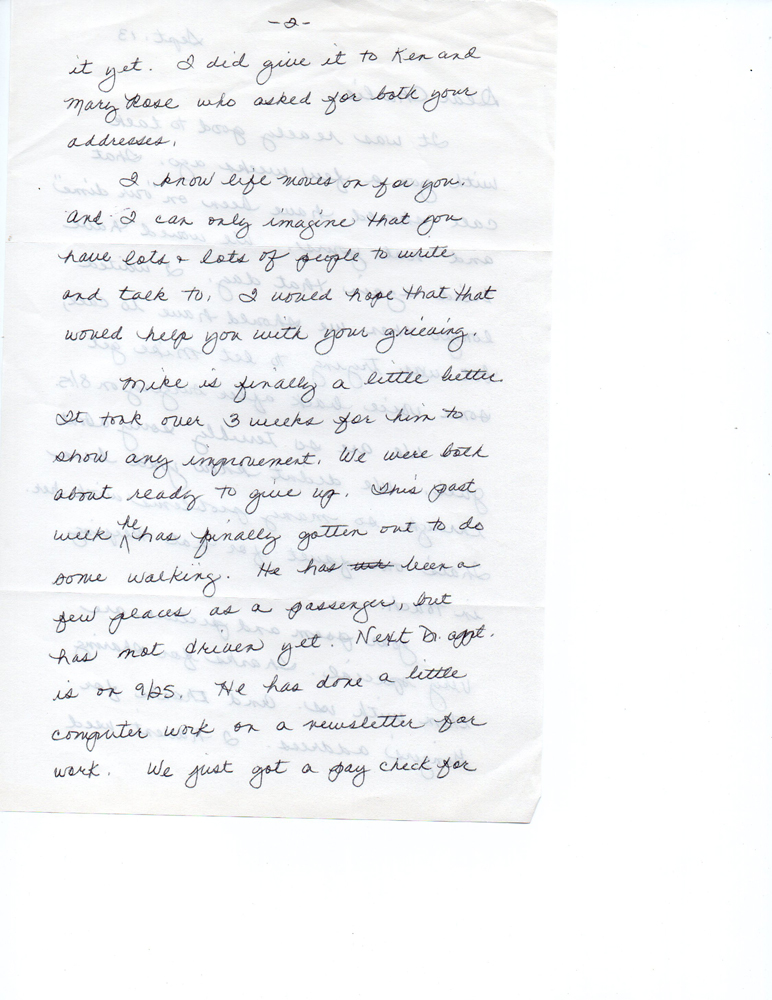 -2-
it yet. I did give it to Ken and
Mary Rose who asked for both your
addresses.
I know life moves on for you.
And I can only imagine that you
have lots & lots of people to write
and talk to. I would hope that that
would help you with your grieving.
Mike is finally a little better.
It took over 3 weeks for him to
show any improvement. We were both
about ready to give up. This past
week he has finally gotten out to do
some walking. He has been a
few places as a passenger, but
has not driven yet. Next Dr. appt.
is on 9/25. He has done a little
computer work on a newsletter for
work. We just got a pay check for